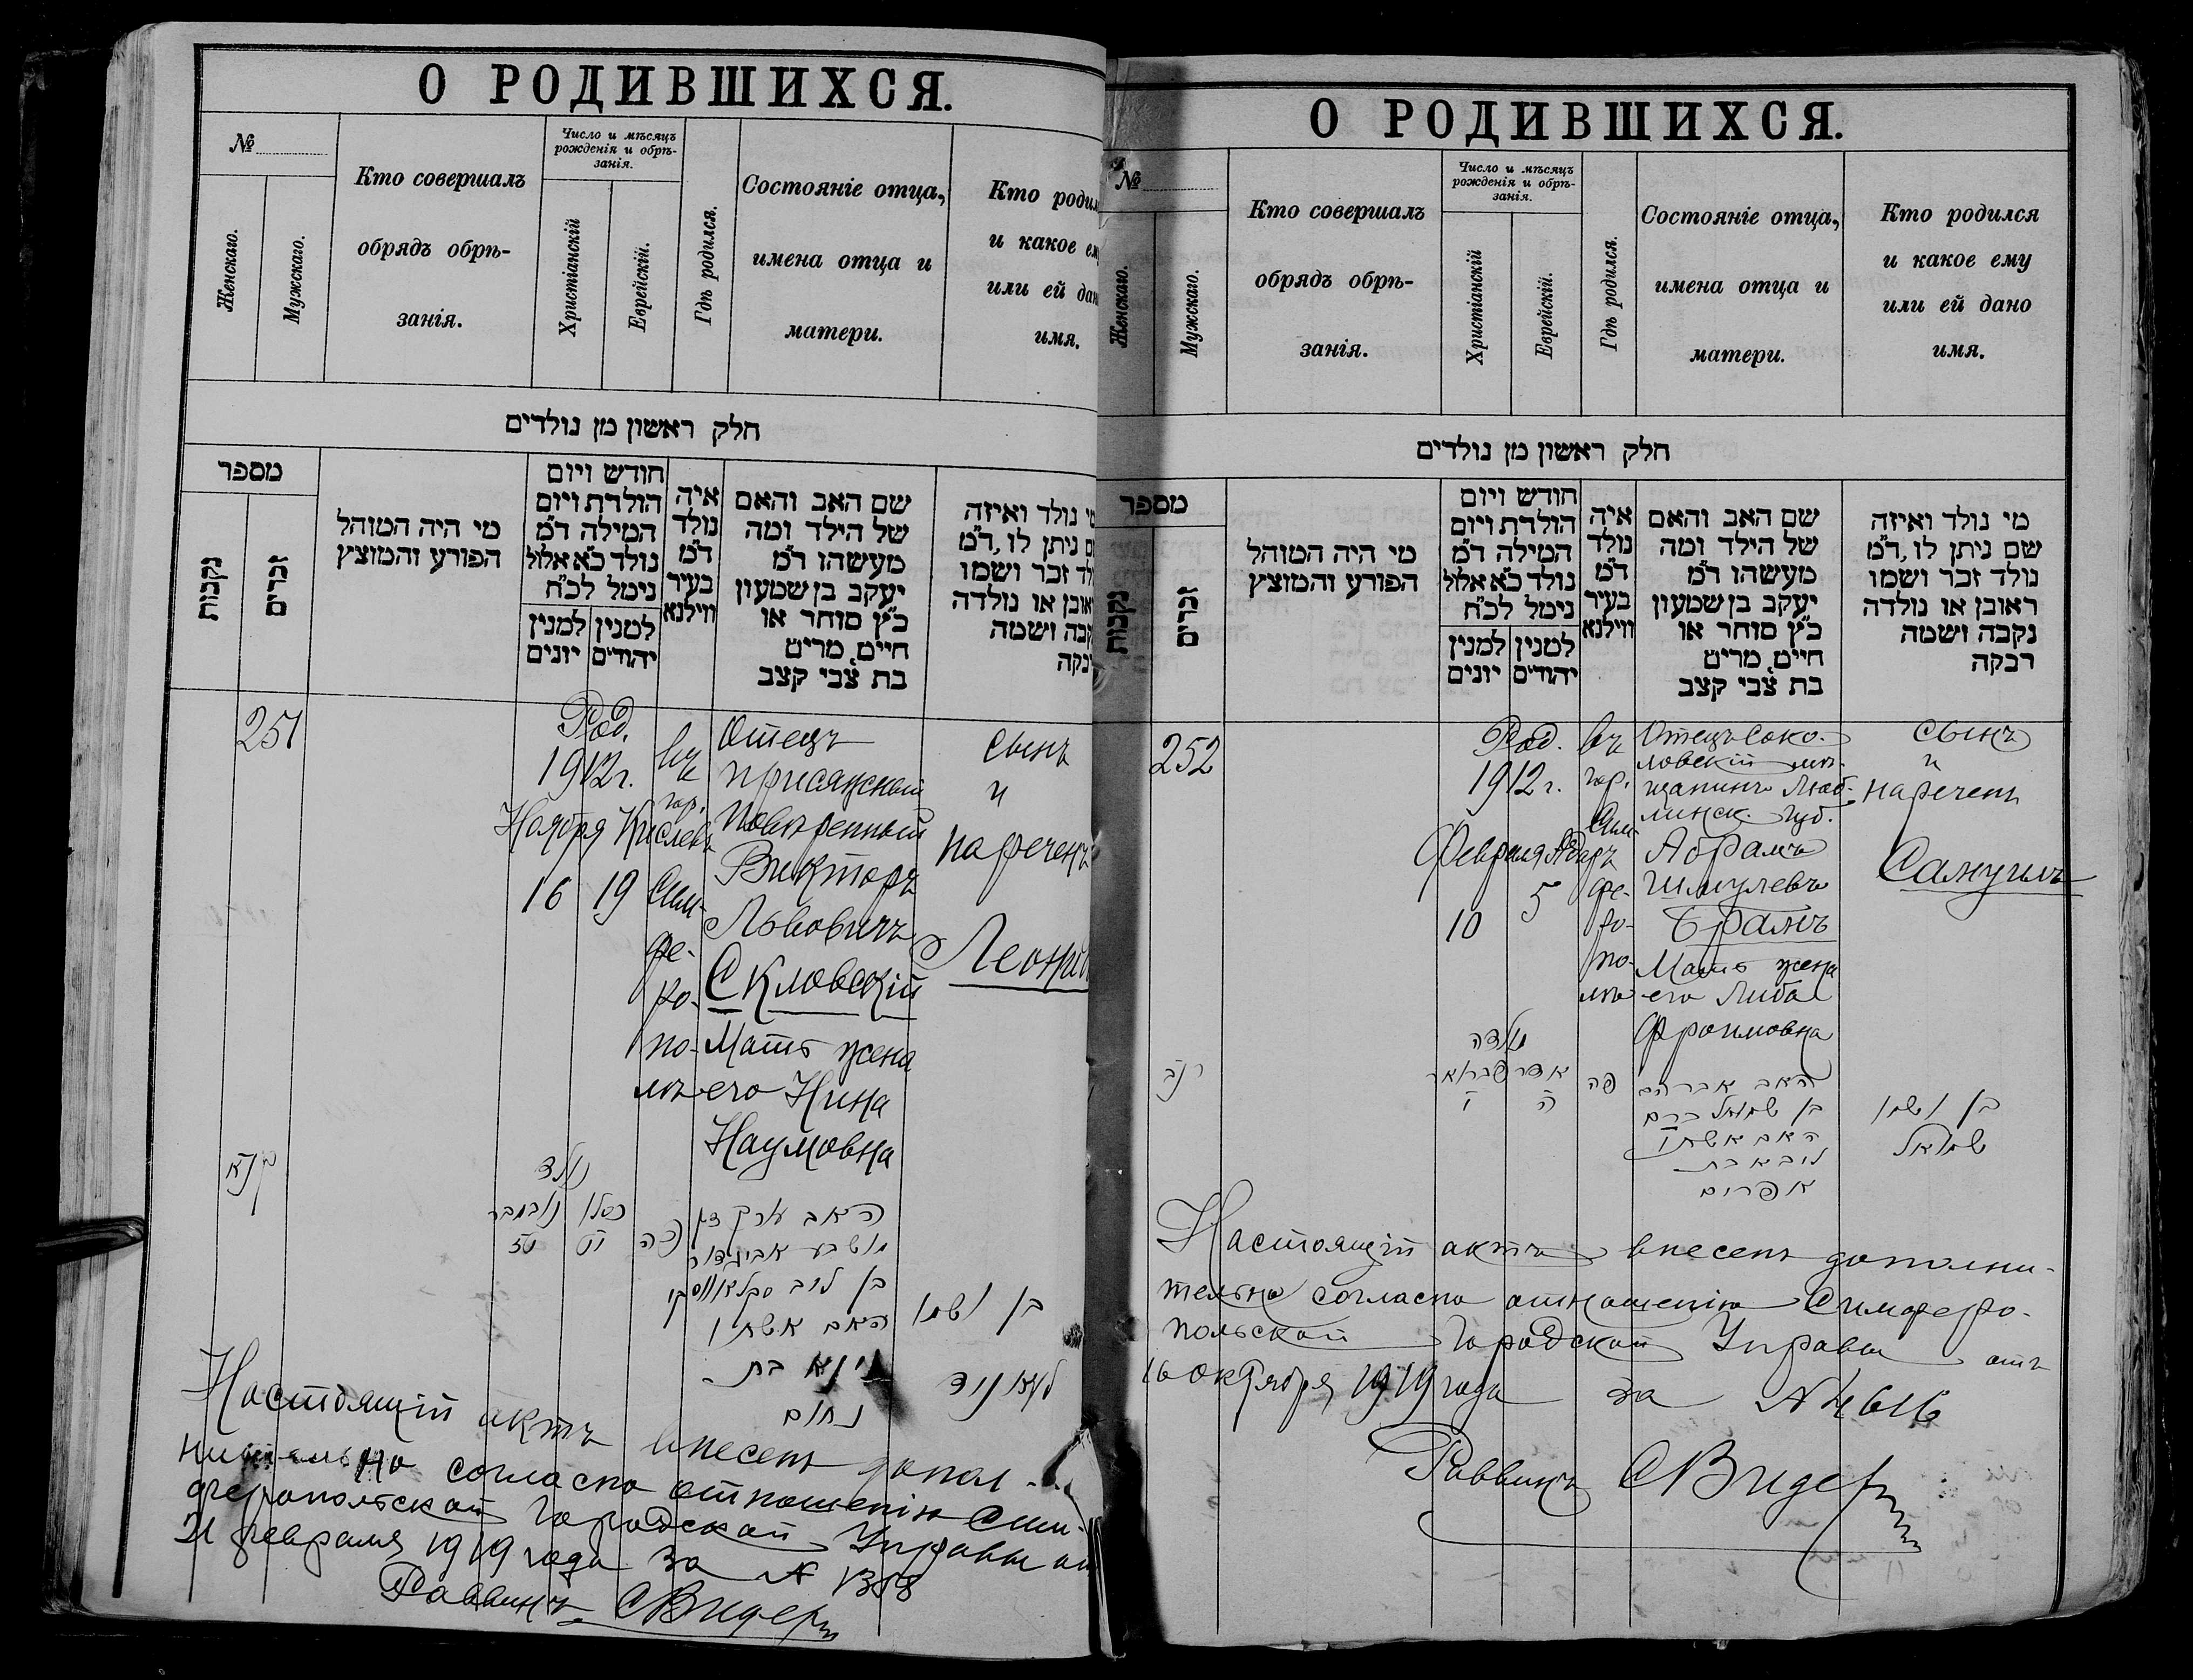 О РОДИВШИХСЯ.
№
Женскаго.
Мужскаго.
Кто совершалъ
обрядъ обрѣ-
занія.
Число и мѣсяцъ
рожденія и обрѣ-
занія.
Христіанскій
Еврейскій.
Гдѣ родился.
Состояніе отца,
имена отца и
матери.
Кто роди
и какое ем
или ей дан
имя.
חלק ראשון מן נולדים
מספר
נקבות
זכרים
מי היה המוהל
הפורע והמוצץ
חודש ויום
הולדת ויום
המילה ד״מ
נולד כ״א אלול
נימל לכ״ח
למנין
יונים
למנין
יהודים
איה
נולד
ד״מ
בעיר
ווילנא
שם האב והאם
של הילד ומה
מעשהו ד״מ
יעקב בן שמעון
כ״ץ סוחר או
חיים, מרים
בת צבי קצב
י נולד ואיזה
ם ניתן לו, ד״מ
לד זכר ושמו
אובן או נולדה
קבה ושמה
בקה
251
Род.
1912 г.
Ноября Кислевъ
16 19
въ
гор.
Сим-
фе-
ро-
по-
лѣ
Отецъ
присяжный
повѣренный
Викторъ
Львовичъ
Скловскій
Мать жена
его Нина
Наумовна
сынъ
и
нареченъ
Леони
רנא
נולד
נובמבר
כסלו
טז
יט
פה
האב
מושבע אביגדור
בן ליב סקלאווסקי
האם אשתו
נינא בת
נחום
בן ושמו
Настоящій актъ внесенъ допол-
нительно согласно отношенію Сим-
феропольской Городской Управы от
21 февраля 1919 года за № 1358
Раввинъ СВидер
О РОДИВШИХСЯ.
№
Женскаго.
Мужскаго.
Кто совершалъ
обрядъ обрѣ-
занія.
Число и мѣсяцъ
рожденія и обрѣ-
занія.
Христіанскій
Еврейскій.
Гдѣ родился.
Состояніе отца,
имена отца и
матери.
Кто родился
и какое ему
или ей дано
имя.
חלק ראשון מן נולדים
מספר
נקבות
זכרים
מי היה המוהל
הפורע והמוצץ
חודש ויום
הולדת ויום
המילה ד״מ
נולד כ״א אלול
נימל לכ״ח
למנין
יונים
למנין
יהודים
איה
נולד
ד״מ
בעיר
ווילנא
שם האב והאם
של הילד ומה
מעשהו ד״מ
יעקב בן שמעון
כ״ץ סוחר או
חיים, מרים
בת צבי קצב
מי נולד ואיזה
שם ניתן לו, ד״מ
נולד זכר ושמו
ראובן או נולדה
נקבה ושמה
רבקה
252
Род.
1912 г.
Февраля Адаръ
10 5
въ
гор.
Сим-
фе-
ро-
по-
лѣ
Отецъ Соко-
ловскій мѣ-
щанинъ Люб-
линск. губ.
Абрамъ
Шмулевъ
Брамъ
Мать жена
его Либа
Фроимовна
сынъ
и
нареченъ
Самуилъ
רנב
נולד
פברואר
אדר
י
ה
פה
האב אברהם
בן שמואל ברם
האם אשתו
ליבא בת
אפרים
בן ושמו
שמואל
Настоящій актъ внесенъ дополни-
тельно согласно отношенію Симферо-
польской Городской Управы отъ
16 октября 1919 года за № 4616
Раввинъ СВидер